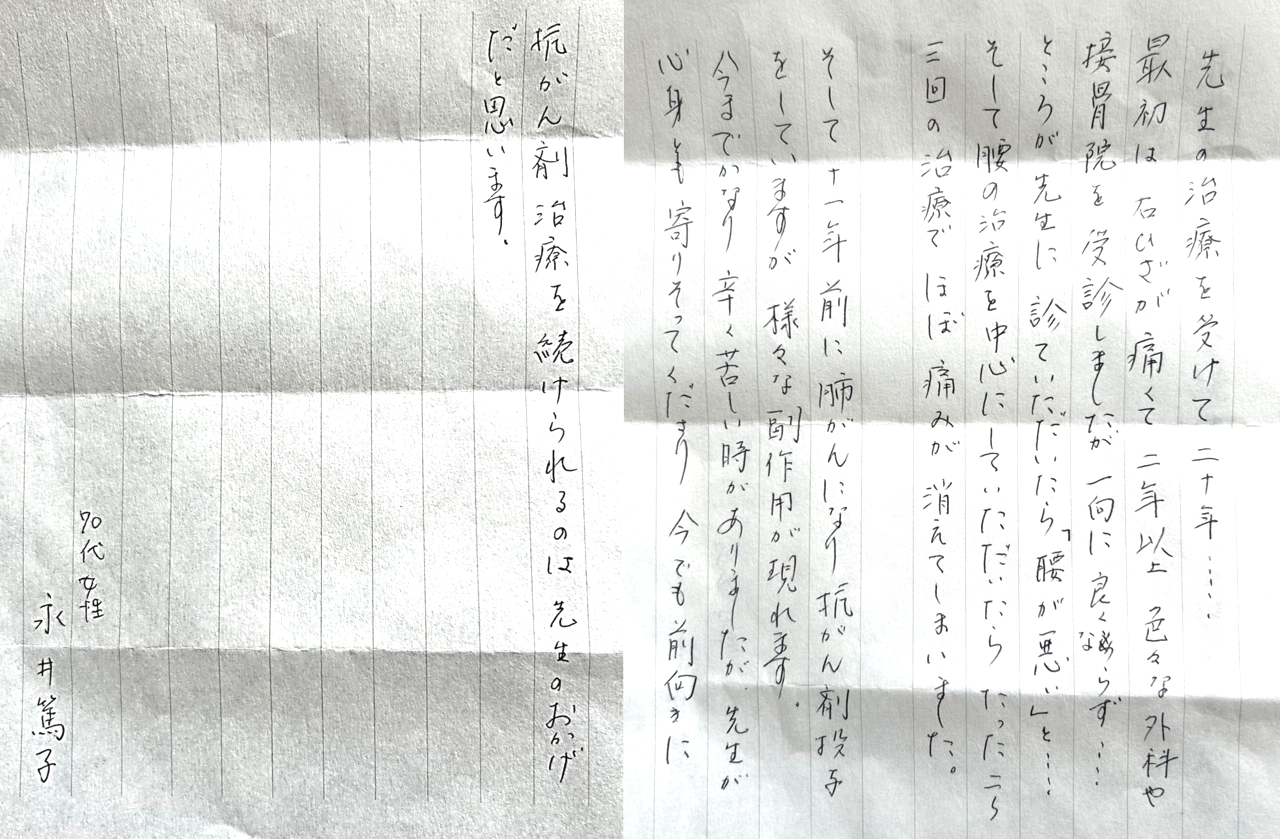 先生の治療を受けて二十年‥‥‥
最初は右ひざが痛くて二年以上色々な外科や
接骨院を受診しましたが一向に良くならず‥‥
ところが先生に診ていただいたら「腰が悪い」と‥‥
そして腰の治療を中心にしていただいたらたった二、
三回の治療でほぼ痛みが消えてしまいました。
そして十一年前に肺がんになり抗がん剤投与
をしていますが様々な副作用が現れます。
今までかなり辛く苦しい時がありましたが、先生が
心身とも寄りそってくださり今でも前向きに
抗がん剤治療を続けられるのは先生のおかげ
だと思います。
70代女性
永井篤子